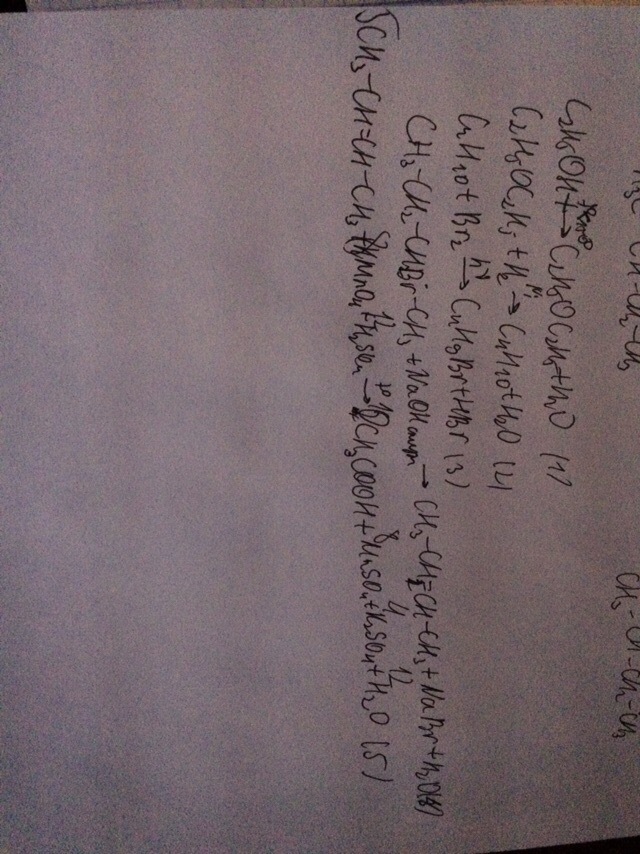 CH-CH₂-CH₃
CH₃-CH-CH₂-CH₃
C₂H₅OH → C₂H₅OC₂H₅+H₂O (1)
C₂H₅OC₂H₅+H₂ → C₄H₁₀+H₂O (2)
C₄H₁₀+Br₂ hν→ C₄H₉Br+HBr (3)
CH₃-CH₂-CHBr-CH₃+NaOH → CH₃-CH=CH-CH₃+NaBr+H₂O
5CH₃-CH=CH-CH₃+8KMnO₄+12H₂SO₄ t°→ 10CH₃COOH+8MnSO₄+4K₂SO₄+12H₂O (5)